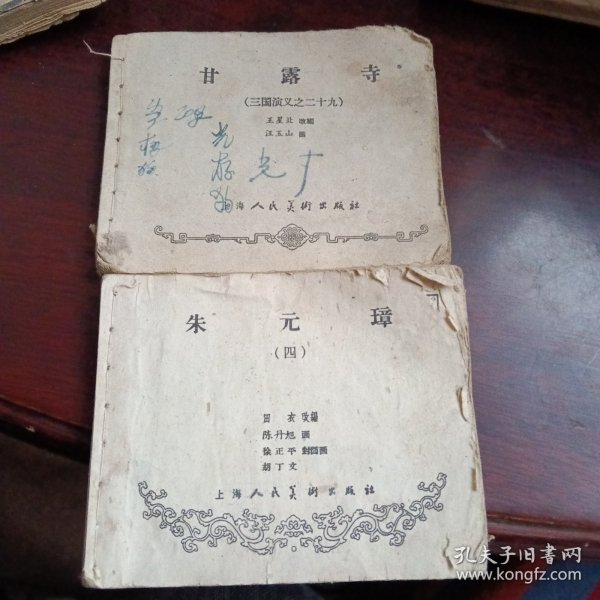 甘露寺
(三国演义之二十九)
王星北 改编
汪玉山 画
光存
上海人民美術出版社
朱元璋
(四)
田衣 改编
陈丹旭 画
徐正平 封面画
胡丁文
上海人民美術出版社
孔夫子旧书网
www.kongfz.com